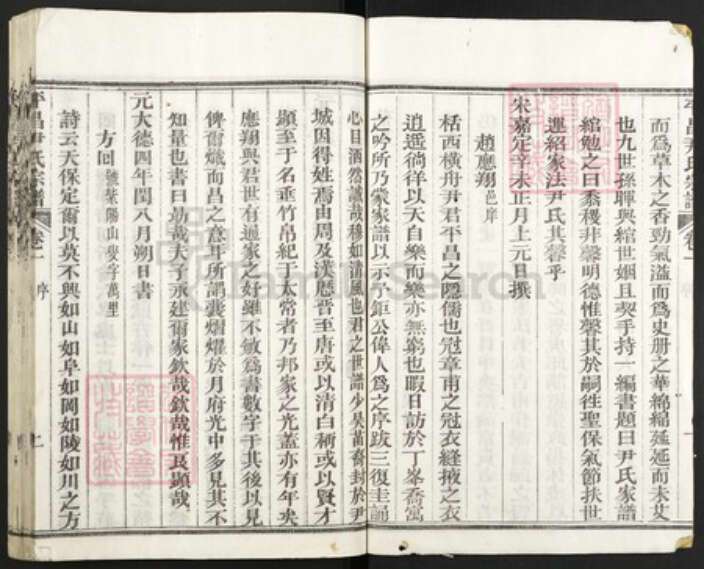 而為草木之香勁氣溢而為史册之華綿綿延延而未艾
也九世孫暉與綰世姻且契手持一編書題曰尹氏家譜
綰勉之曰黍稷非馨明德惟馨其於嗣徃聖保氣節扶世
運紹家法尹氏其馨乎
宋嘉定辛未正月上元日撰
趙應翔邑庠
栝西橫舟尹君平昌之隱儒也冠章甫之冠衣縫掖之衣
逍遥徜徉以天自樂而樂亦無窮也暇日訪於丁峯喬寓
之吟所乃蒙家譜以示予鉅公偉人為之序跋三復圭誦
心目洒然誠哉穆如清風也君之世譜少昊苗裔封於尹
城因得姓焉由周及漢歷晉至唐或以清白稱或以賢才
顯至于名垂竹帛紀于太常者乃邦家之光蓋亦有年矣
應翔與君世有通家之好雖不敏為書數字于其後以見
俾爾熾而昌之意耳所謂奕熠燿於月府光中多見其不
知量也書曰勗哉夫子永建爾家欽哉欽哉惟艮顯哉
元大德四年閏八月朔日書
方回號紫陽山叟字萬里
詩云天保定爾以莫不興如山如阜如岡如陵如川之方
平昌尹氏宗譜
卷一
序